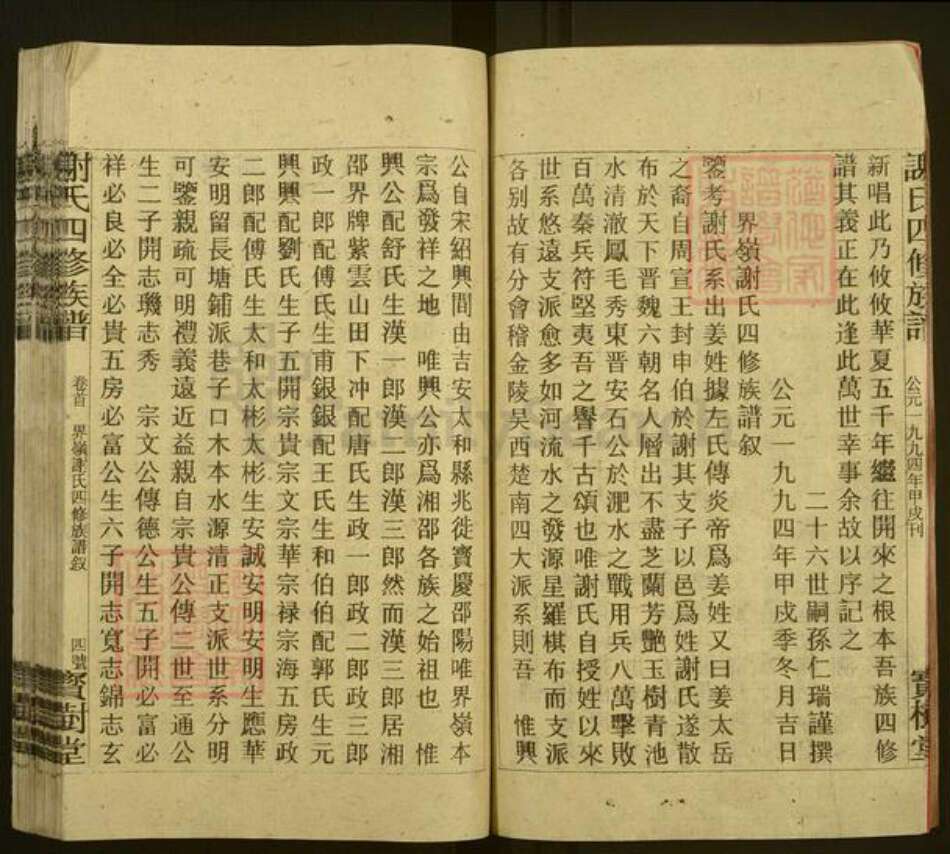 謝氏四修族譜
公元一九九四年甲戌刊
寶樹堂
新唱此乃攸攸華夏五千年繼往開來之根本吾族四修
譜其義正在此逢此萬世幸事余故以序記之
二十六世嗣孫仁瑞謹撰
公元一九九四年甲戌季冬月吉日
界嶺謝氏四修族譜叙
鑒考謝氏系出姜姓據左氏傳炎帝爲姜姓又曰姜太岳
之裔自周宣王封申伯於謝其支子以邑爲姓謝氏遂散
布於天下晋魏六朝名人層出不盡芝蘭芳艷玉樹青池
水清澈鳳毛秀東晋安石公於淝水之戰用兵八萬擊敗
百萬秦兵符堅夷吾之譽千古頌也唯謝氏自授姓以來
世系悠遠支派愈多如河流水之發源星羅棋布而支派
各別故有分會稽金陵吴西楚南四大派系則吾 惟興
公自宋紹興間由吉安太和縣兆徙寶慶邵陽唯界嶺本
宗爲發祥之地 唯興公亦爲湘邵各族之始祖也 惟
興公配舒氏生漢一郎漢二郎漢三郎然而漢三郎居湘
邵界牌紫雲山田下冲配唐氏生政一郎政二郎政三郎
政一郎配傅氏生甫銀銀配王氏生和伯伯配郭氏生元
興興配劉氏生子五開宗貴宗文宗華宗禄宗海五房政
二郎配傅氏生太和太彬太彬生安誠安明安明生應華
安明留長塘鋪派巷子口木本水源清正支派世系分明
可鑒親疏可明禮義遠近益親自宗貴公傳二世至通公
生二子開志璣志秀 宗文公傳德公生五子開必富必
祥必良必全必貴五房必富公生六子開志寬志錦志玄
謝氏四修族譜
卷首
界嶺謝氏四修族譜叙
四號
寶樹堂